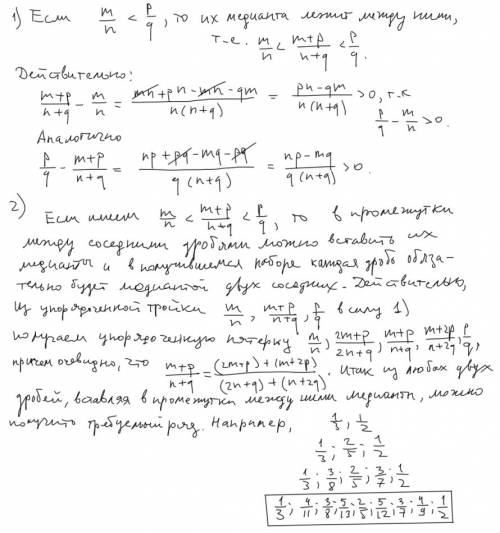 1) Если m/n < p/q, то их медианта лежит между ними,
т.е. m/n < (m+p)/(n+q) < p/q.
Действительно:
(m+p)/(n+q) - m/n = (mn+pn-mn-qm)/(n(n+q)) = (pn-qm)/(n(n+q)) > 0, т.к
p/q - m/n > 0.
Аналогично
p/q - (m+p)/(n+q) = (np+pq-mq-pq)/(q(n+q)) = (np-mq)/(q(n+q)) > 0.
2) Если имеем m/n < (m+p)/(n+q) < p/q, то в промежутки
между соседними дробями можно вставить их
медианты и в получившемся наборе каждая дробь обяза-
тельно будет медиантой двух соседних. Действительно,
из упорядоченной тройки m/n, (m+p)/(n+q), p/q в силу 1)
получаем упорядоченную пятерку m/n, (2m+p)/(2n+q), (m+p)/(n+q), (m+2p)/(n+2q), p/q,
причем очевидно, что (m+p)/(n+q) = ((2m+p)+(m+2p))/((2n+q)+(n+2q)). Итак из любых двух
дробей, вставляя в промежутки между ними медианты, можно
получить требуемый ряд. Например, 1/3; 1/2
1/3; 2/5; 1/2
1/3; 3/8; 2/5; 3/7; 1/2
1/3; 4/11; 3/8; 5/13; 2/5; 5/12; 3/7; 4/9; 1/2